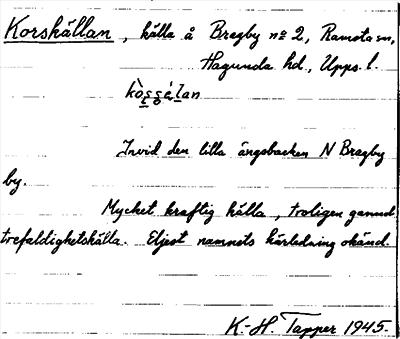 Korskällan, källa å Bragby nº 2, Ramsta sn,
Hagunda hd., Upps. l.
kòs̩s̩é̩lan
Invid den lilla ängsbacken N Bragby
by.
Mycket kraftig källa, troligen gammal
trefaldighetskälla. Eljest namnets härledning okänd.
K.-H. Tapper 1945.